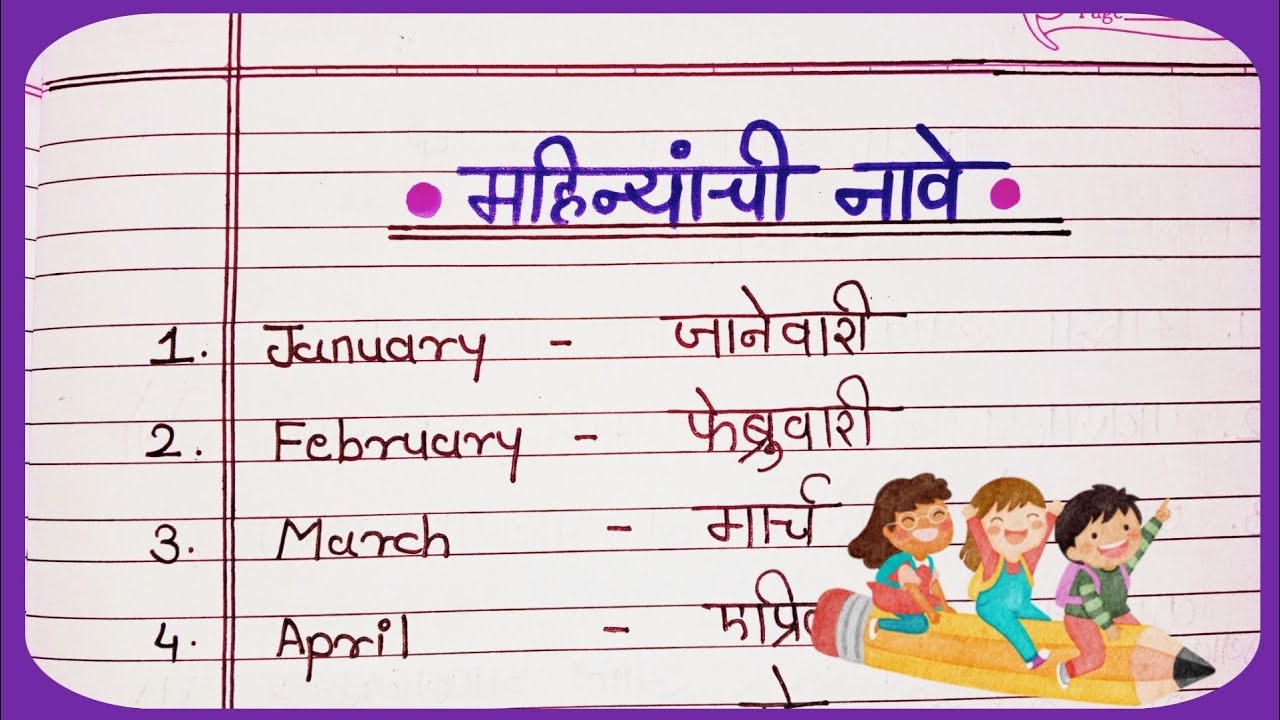 Page
महिन्यांची नावे
1. January - जानेवारी
2. February - फेब्रुवारी
3. March - मार्च
4. April -